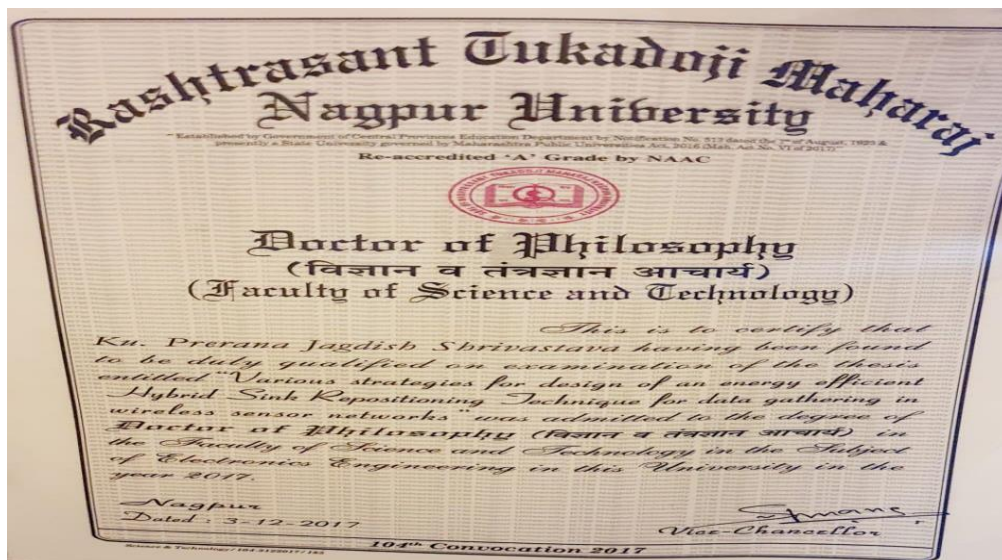 Rashtrasant Tukadoji Maharaj
Nagpur University
"Established by Government of Central Provinces Education Department by Notification No. 513 dated the 1st of August, 1923 &
presently a State University governed by Maharashtra Public Universities Act, 2016 (Mah. Act No. VI of 2017)"
Re-accredited 'A' Grade by NAAC
Doctor of Philosophy
(विज्ञान व तंत्रज्ञान आचार्य)
(Faculty of Science and Technology)
This is to certify that
Ku. Prerana Jagdish Shrivastava having been found
to be duly qualified on examination of the thesis
entitled "Various strategies for design of an energy efficient
Hybrid Sink Repositioning Technique for data gathering in
wireless sensor networks" was admitted to the degree of
Doctor of Philosophy (विज्ञान व तंत्रज्ञान आचार्य) in
the Faculty of Science and Technology in the Subject
of Electronics Engineering in this University in the
year 2017.
Nagpur
Dated : 3-12-2017
Vice-Chancellor
104th Convocation 2017